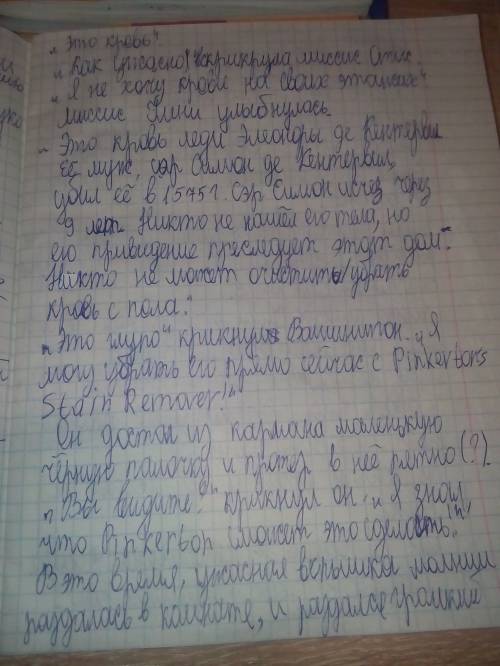 „Это кровь".
„Как ужасно!" вскрикнула миссис Отис.
„Я не хочу крови на своих этажах"
Миссис Юмни улыбнулась.
„Это кровь леди Элеоноры де Кентервил
Её муж, сэр Симон де Кентервил,
убил её в 1575 г. Сэр Симон исчез через
9 лет. Никто не нашёл его тела, но
его привидение преследует этот дом".
Никто не может очистить/убрать
кровь с пола."
„Это глупо" крикнул Вашингтон. „Я
могу убрать его прямо сейчас с Pinkerton's
Stain Remover!"
Он достал из кармана маленькую
чёрную палочку и протёр в неё пятно (?).
„Вы видите?" крикнул он. „Я знал,
что Pinkerton сможет это сделать!"
В это время, ужасная вспышка молнии
раздалась в комнате, и раздался громкий